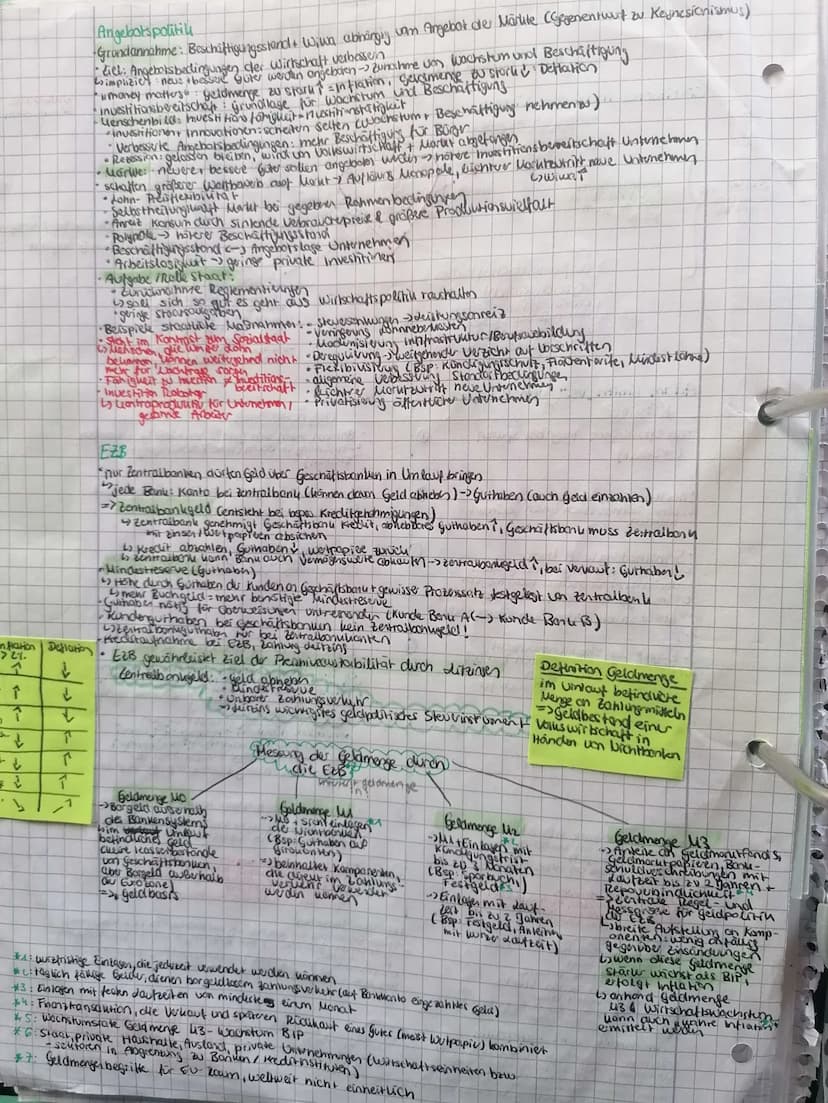 Angebotspolitik
- Grundannahme: Beschäftigungsstand + Wiwa abhängig vom Angebot der Märkte (Gegenentwurf zu Keynesianismus)
• Ziel: Angebotsbedingungen der Wirtschaft verbessern
↳ implizit: neue + bessere Güter werden angeboten → Zunahme von Wachstum und Beschäftigung
• "money matters": Geldmenge zu stark ↑ = Inflation, Geldmenge zu stark ↓: Deflation
• Investitionsbereitschaft: Grundlage für Wachstum und Beschäftigung
• Menschenbild: Investitionsfähigkeit = Investitionstätigkeit
• Investitionen + Innovationen: scheitern selten (Wachstum + Beschäftigung nehmen zu)
• Verbesserte Angebotsbedingungen: mehr Beschäftigung für Bürger
• Rezession: gelassen bleiben, wird von Volkswirtschaft + Markt abgefangen
• Märkte: neuere + bessere Güter sollen angeboten werden → höhere Investitionsbereitschaft Unternehmen
- schaffen größerer Wettbewerb auf Markt → Auflösung Monopole, leichter Marktzutritt neue Unternehmen
↳ Wiwa ↑
• Lohn- Preisflexibilität
• Selbstheilungskraft Markt bei gegeben Rahmenbedingungen
• Anreiz Konsum durch sinkende Verbraucherpreise & größere Produktionsvielfalt
→ höherer Beschäftigungsstand
• Beschäftigungsstand ↔ Angebotslage Unternehmen
• Arbeitslosigkeit → geringe private Investitionen
- Aufgabe / Rolle Staat:
• Zurücknahme Reglementierungen
↳ soll sich so gut es geht aus Wirtschaftspolitik raushalten
• geringe Staatsausgaben
• Beispiele staatliche Maßnahmen: - Steuersenkungen → Leistungsanreiz
• Verringerung Lohnnebenkosten
• Modernisierung Infrastruktur / Berufsausbildung
• Deregulierung → weitgehender Verzicht auf Vorschriften
• Flexibilisierung (Bsp: Kündigungsschutz, Flächentarife, Mindestlöhne)
• allgemeine Verbesserung Standortbedingungen
• leichter Marktzutritt neue Unternehmen
• Privatisierung öffentlicher Unternehmen
- Steht im Kontrast zum Sozialstaat
↳ Menschen, die weniger Lohn
bekommen, können weitgehend nicht
mehr für Nachfrage sorgen
- Fähigkeit zu investieren ≠ Investitions-
bereitschaft
- Investition Roboter
↳ Kontraproduktiv für Unternehmen,
Arbeiter
EZB
• nur Zentralbanken dürfen Geld über Geschäftsbanken in Umlauf bringen
↳ jede Bank: Konto bei Zentralbank (können dann Geld abheben) → Guthaben (auch Geld einzahlen)
=> Zentralbankgeld (entsteht bei bspw. Kreditgenehmigungen)
↳ Zentralbank genehmigt Geschäftsbank Kredit, abhebbares Guthaben ↑, Geschäftsbank muss Zentralbank
mit Zinsen / Wertpapieren absichern
↳ Kredit abzahlen, Guthaben ↓, Wertpapiere zurück
↳ Zentralbank kann Bank auch Vermögenswerte abkaufen → Zentralbankgeld ↑, bei Verkauf: Guthaben ↓
- Mindestreserve (Guthaben)
↳ Höhe durch Guthaben der Kunden an Geschäftsbank + gewisser Prozentsatz festgelegt von Zentralbank
↳ mehr Buchgeld: mehr benötigte Mindestreserve
- Guthaben nötig für Überweisungen untereinander (Kunde Bank A ↔ Kunde Bank B)
- Kundenguthaben bei Geschäftsbanken kein Zentralbankgeld!
↳ Zentralbankguthaben nur bei Zentralbankkonten
- Kreditaufnahme bei EZB, Zahlung Leitzins
• EZB gewährleistet Ziel der Preisniveaustabilität durch Leitzinsen
Zentralbankgeld: • Geld abheben
• Mindestreserve
• Unbarer Zahlungsverkehr
→ Leitzins wichtigstes geldpolitisches Steuerinstrument
Inflation
> 2%
Deflation
Definition Geldmenge
im Umlauf befindliche
Menge an Zahlungsmitteln
=> Geldbestand einer
Volkswirtschaft in
Händen von Nichtbanken
Messung der Geldmenge durch
die EZB
Geldmenge M0
→ Bargeld außerhalb
des Bankensystems
im Umlauf
befindliches Geld
Kassenbestände
von Geschäftsbanken,
aber Bargeld außerhalb
der Eurozone)
=> Geldbasis
Geldmenge M1
→ M0 + Sichteinlagen *1
der Nichtbanken
(Bsp: Guthaben auf
Girokonten)
→ beinhaltet Komponenten,
die direkt im Zahlungs-
verkehr verwendet
werden können
Geldmenge M2
→ M1 + Einlagen mit
Kündigungsfrist
bis zu 3 Monaten
(Bsp: Sparbuch,
Festgeld)
→ Einlagen mit Lauf-
zeit bis zu 2 Jahren
(Bsp: Festgeld, Anleihen
mit kurzer Laufzeit)
Geldmenge M3
→ Anteile an Geldmarktfonds,
Geldmarktpapieren, Bank-
schuldverschreibungen mit
Laufzeit bis zu 2 Jahren +
Repoverbindlichkeit
=> Zentrale Regel- und
Messgröße für Geldpolitik
der EZB
↳ breite Aufstellung an Komp-
onenten: wenig anfällig
gegenüber Zinsänderungen
↳ wenn diese Geldmenge
stärker wächst als BIP,
erfolgt Inflation
↳ anhand Geldmenge
M3 & Wirtschaftswachstum
kann auch wahre Inflation
ermittelt werden
*1: kurzfristige Einlagen, die jederzeit verwendet werden können
*2: täglich fällige Gelder, dienen bargeldlosem Zahlungsverkehr (auf Bankkonto eingezahltes Geld)
*3: Einlagen mit festen Laufzeiten von mindestens einem Monat
*4: Finanztransaktion, die Verkauf und späteren Rückkauf eines Gutes (meist Wertpapier) kombiniert
*5: Wachstumsrate Geldmenge M3 - Wachstum BIP
*6: Staat, private Haushalte, Ausland, private Unternehmungen (Wirtschaftseinheiten bzw.
- sektoren in Abgrenzung zu Banken / Kreditinstituten)
*7: Geldmengenbegriffe für EU-Raum, weltweit nicht einheitlich